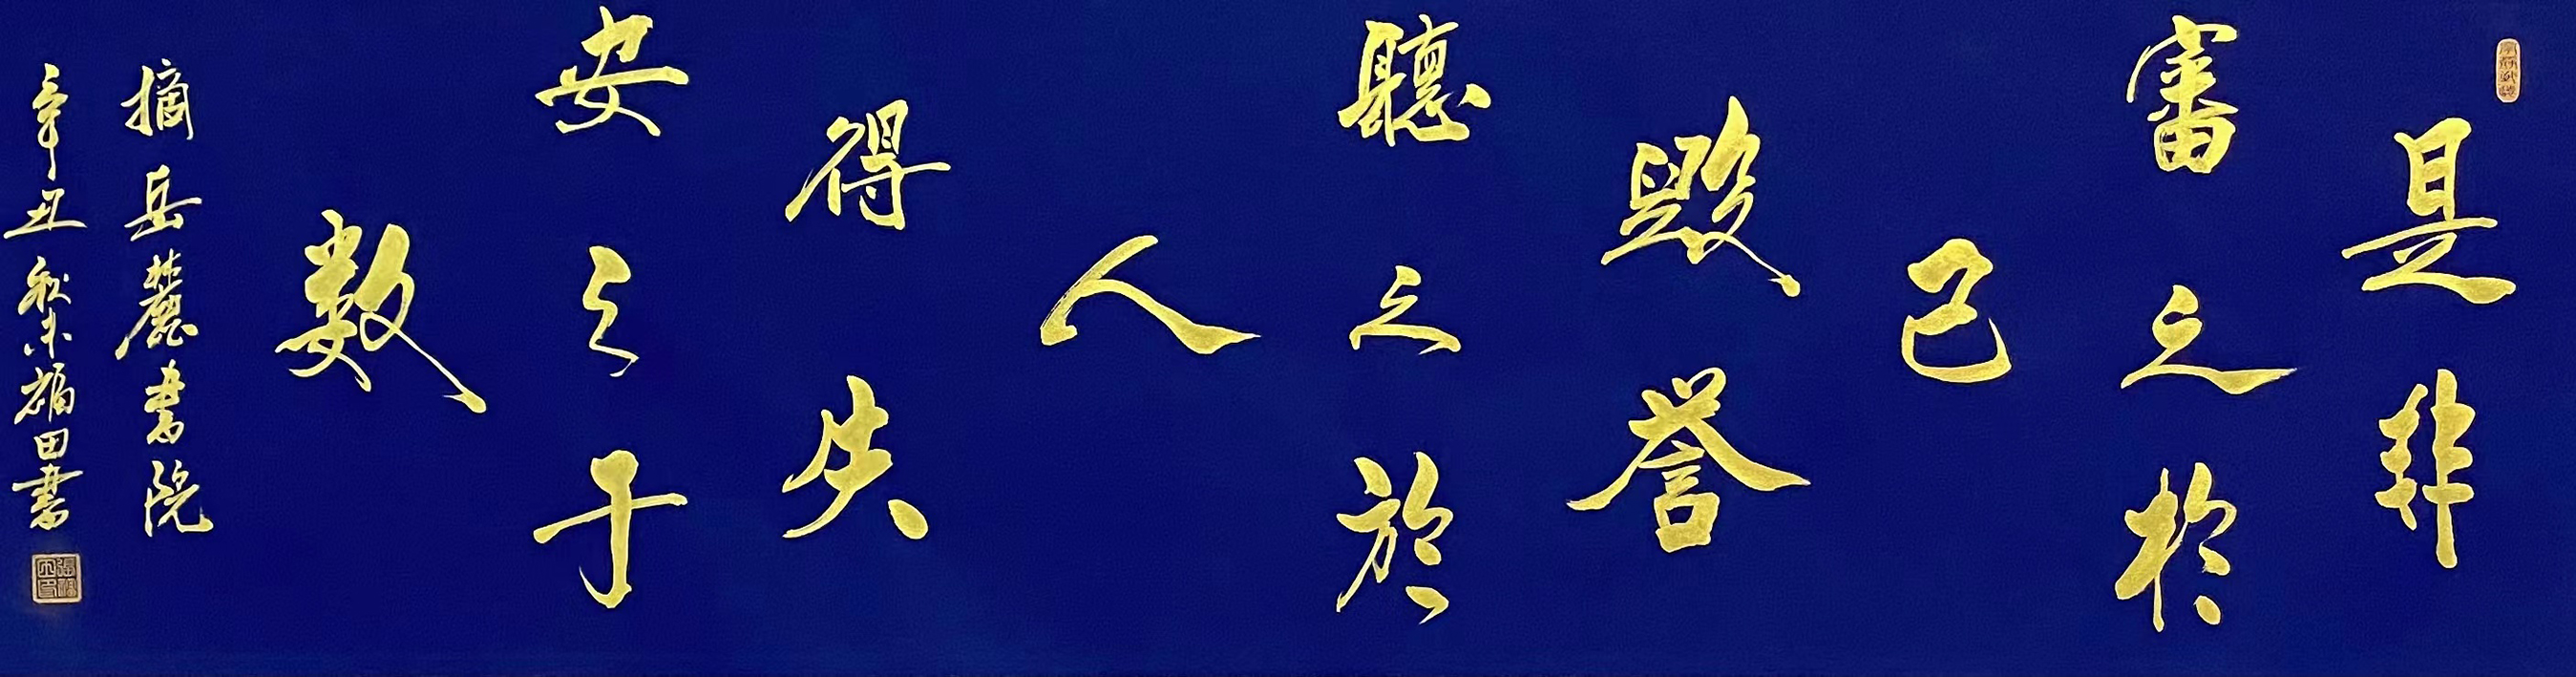 是非
審之於
己
毀譽
聽之於
人
得失
安之于
数
摘岳麓書院
辛丑秋末福田書